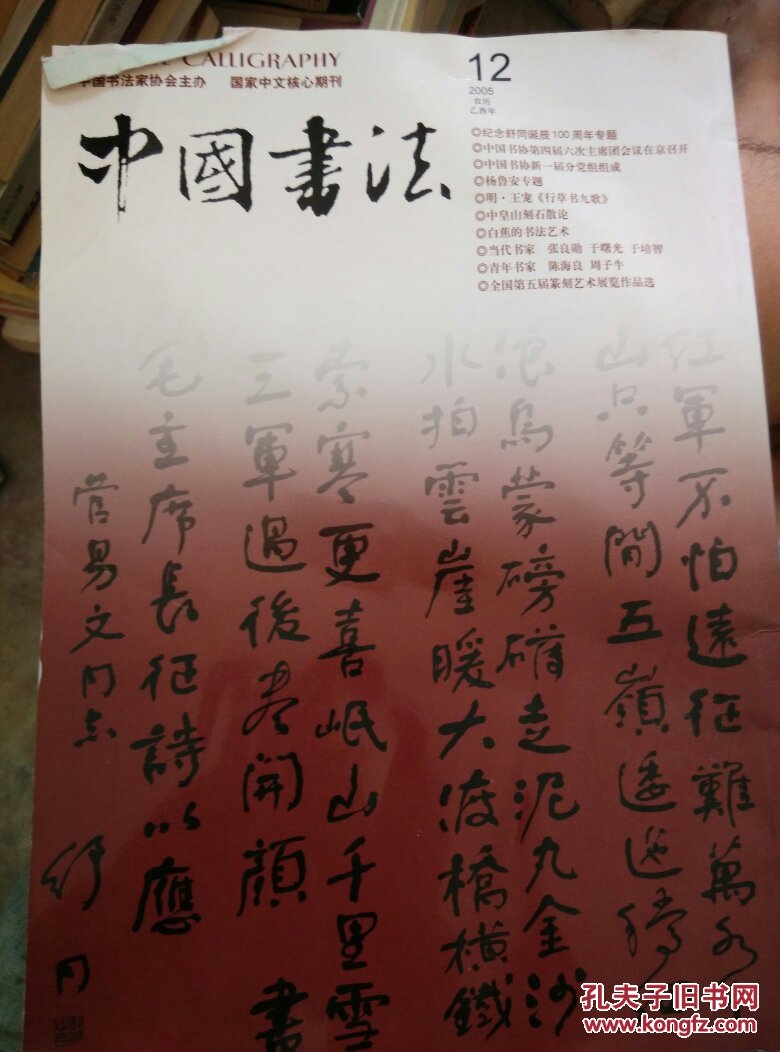 CALLIGRAPHY
中国书法家协会主办 国家中文核心期刊
12
2005
农历
乙酉年
中國書法
◎纪念舒同诞辰100周年专题
◎中国书协第四届六次主席团会议在京召开
◎中国书协新一届分党组组成
◎杨鲁安专题
◎明·王宠《行草书九歌》
◎中皇山刻石散论
◎白蕉的书法艺术
◎当代书家 张良勋 于曙光 于培智
◎青年书家 陈海良 周子牛
◎全国第五届篆刻艺术展览作品选
紅軍不怕遠征難萬水
山只等閒五嶺逶迤騰
浪烏蒙磅礴走泥丸金沙
水拍雲崖暖大渡橋橫鐵
索寒更喜岷山千里雪
三軍過後盡開顏 書
毛主席長征詩以應
管易文同志
舒同
孔夫子旧书网
www.kongfz.com